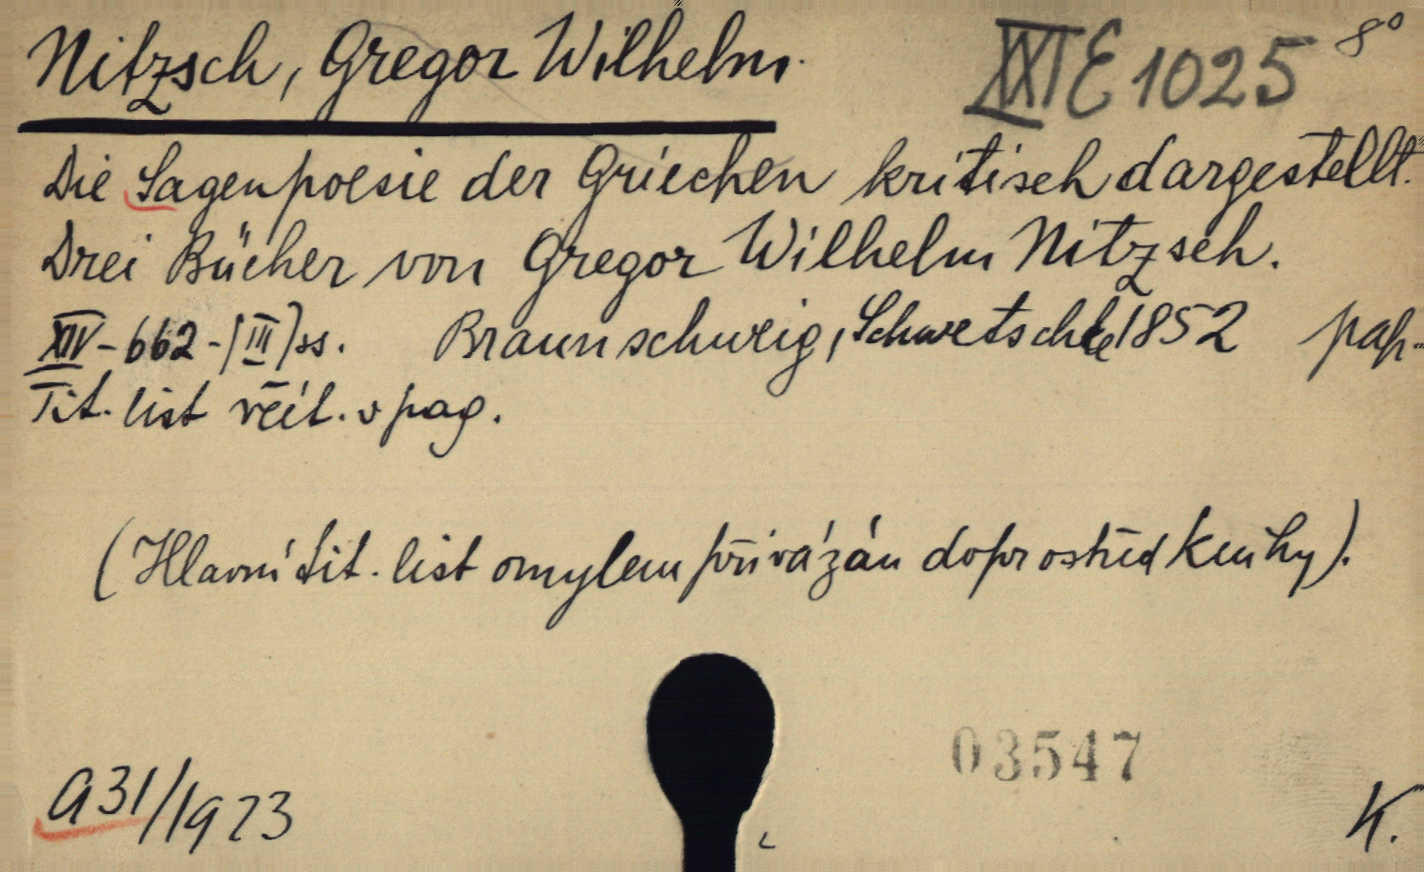 Nitzsch, Gregor Wilhelm.
XXI E 1025 8°
Die Sagenpoesie der Griechen kritisch dargestellt.
Drei Bücher von Gregor Wilhelm Nitzsch.
XIV-662-[III] ss. Braunschweig, Schwetschke 1852 pap.
Tit. list včít. v pag.
(Hlavní tit. list omylem přivázán doprostřed knihy).
03547
a 31/1923
K.